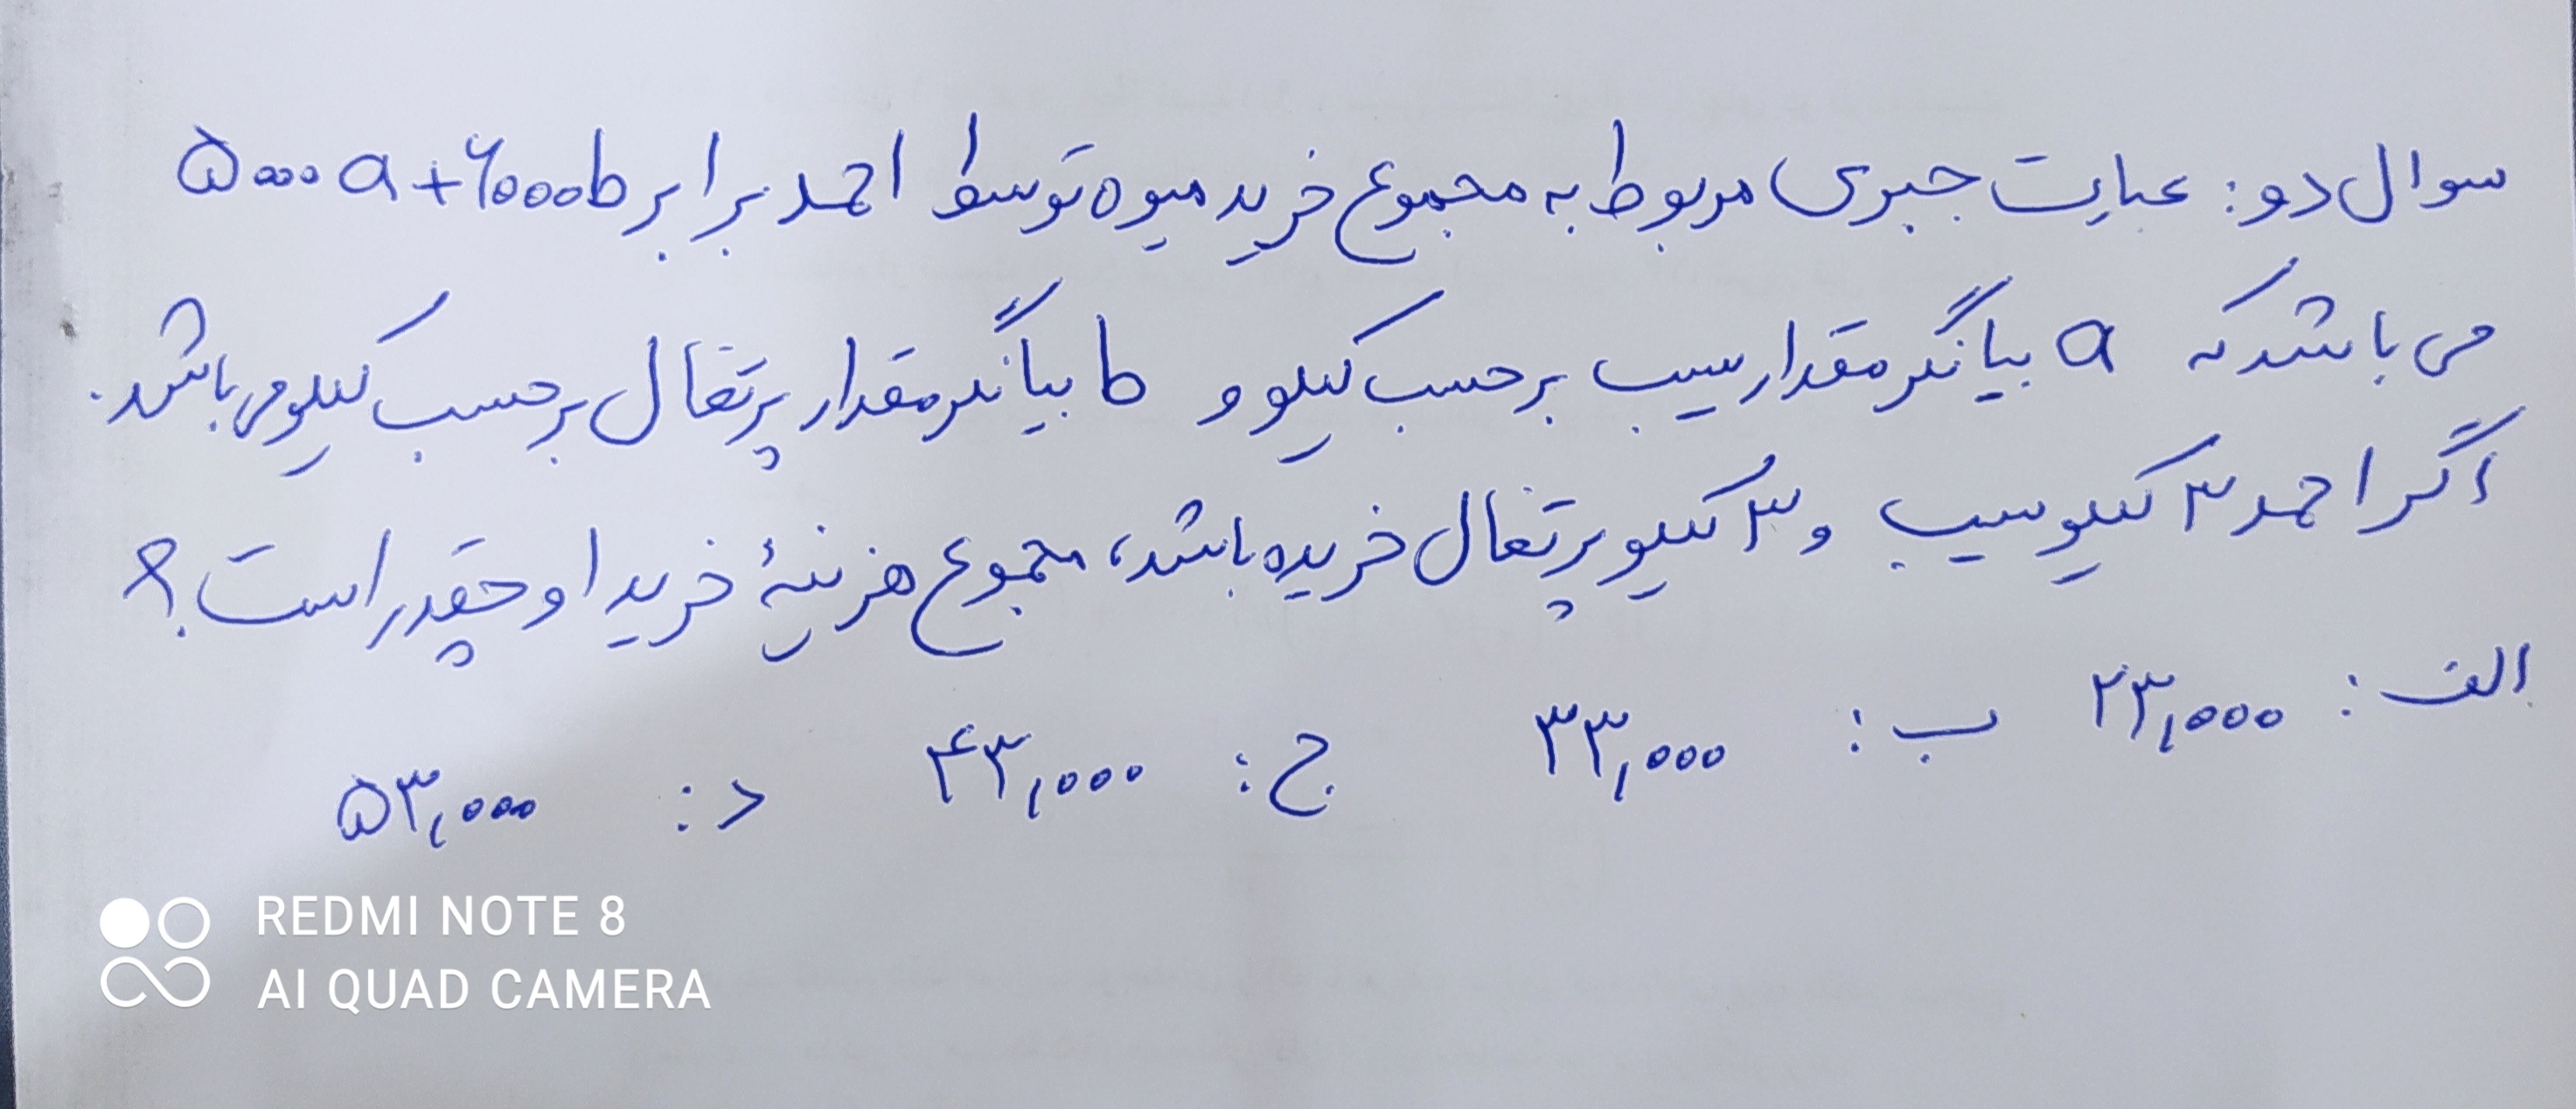 سوال دو: عبارت جبری مربوط به مجموع خرید میوه توسط احمد برابر ۵۰۰۰a+۶۰۰۰b
می باشد که a بیانگر مقدار سیب برحسب کیلو و b بیانگر مقدار پرتغال برحسب کیلو می باشد.
اگر احمد ۳ کیلو سیب و ۳ کیلو پرتغال خریده باشد، مجموع هزینهٔ خرید او چقدر است؟
الف: ۲۳,۰۰۰ ب: ۳۳,۰۰۰ ج: ۴۳,۰۰۰ د: ۵۳,۰۰۰
REDMI NOTE 8
AI QUAD CAMERA